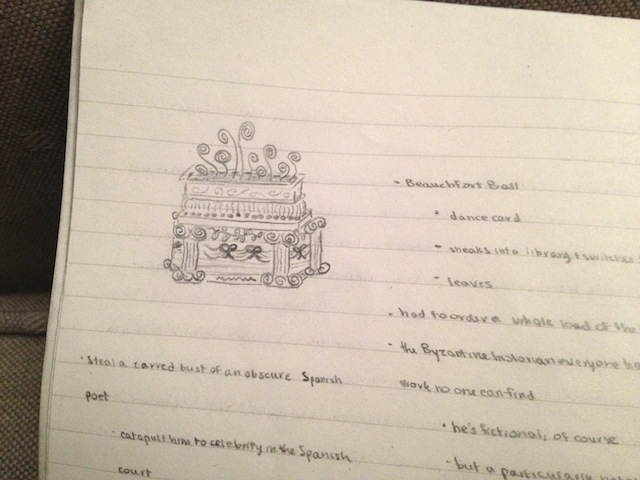 - Beauchfort Ball
• dance card
- sneaks into library + switches
- leaves
• had to order a whole load of the
- the Byzantine historian everyone
work no one can find
• he's fictional, of course
- but a particularly
• Steal a carved bust of an obscure Spanish
poet
- catapult him to celebrity in the Spanish
court